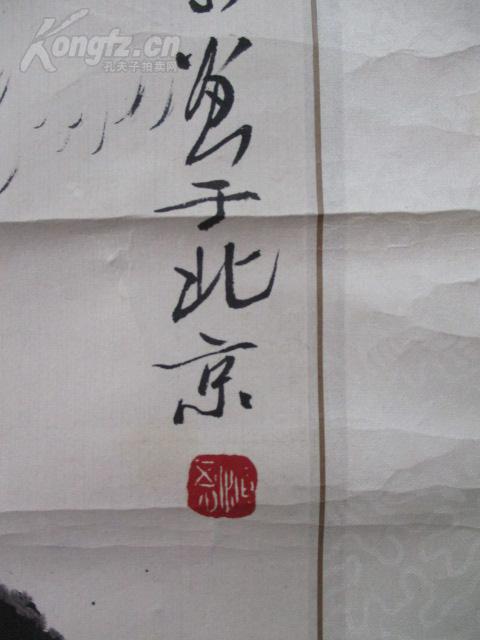 Kongfz.cn
孔夫子拍卖网
画于北京